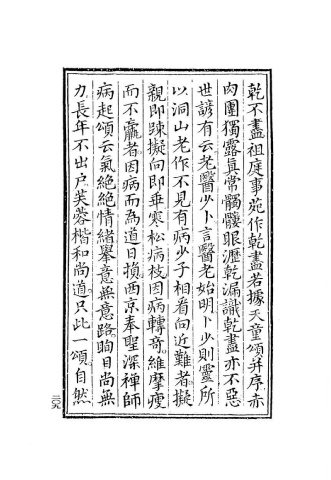 乾不盡祖庭事苑作乾盡若據天童頌并序赤
肉團獨露眞常髑髏眼瀝乾漏識乾盡亦不惡
世諺有云老醫少卜言醫老始明卜少則靈所
以洞山老作不見有病少子相看向近難者擬
親即踈擬向即乖寒松病枝因病轉音維摩瘦
而不羸者因病而為道日損西京奉聖深禪師
病起頌云氣絶絶情緒擧意無意路眴目尚無
力長年不出户芙蓉楷和尚道只此一頌自然
二〇九